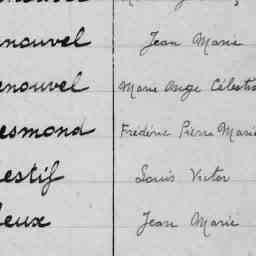 enouvel Jean Marie
enouvel Marie Ange Célestin
esmond Frédéric Pierre Marie
estif Louis Victor
leux Jean Marie